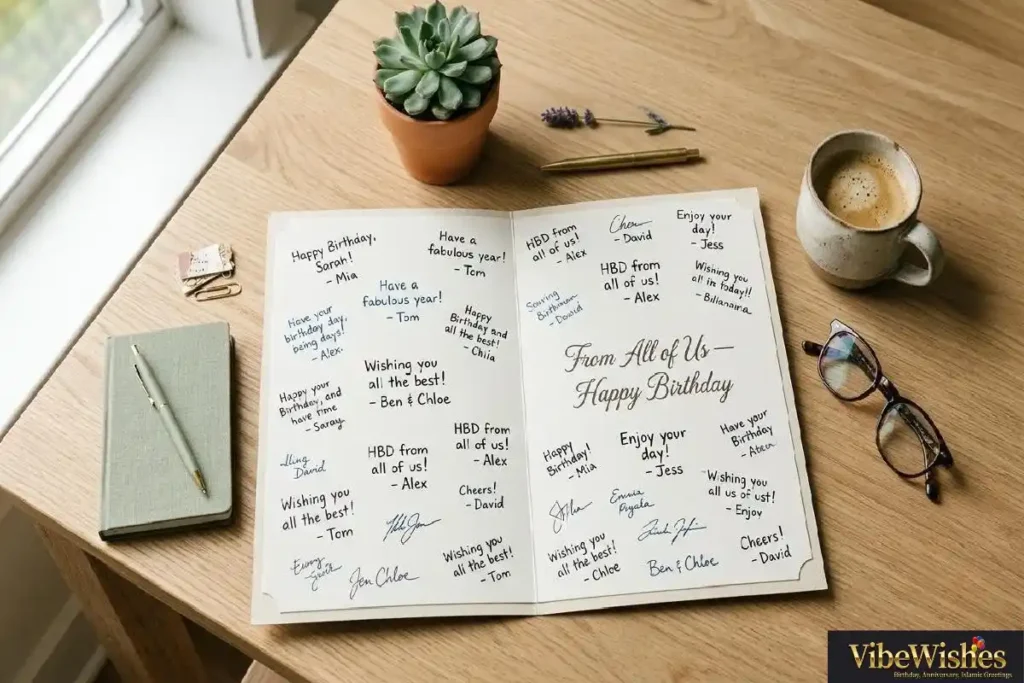 Happy Birthday,
Sarah!
- Mia
Have a
fabulous year!
- Tom
Have a
fabulous year!
- Tom
Have your
birthday day,
being days!
- Alex.
Happy
Birthday and
all the best!
- Chiia
Wishing you
all the best!
- Ben & Chloe
Happy your
Birthday, and
have time
- Saray
HBD from
all of us!
- Alex
HBD from
all of us!
- Alex
David
Cheers!
- David
Wishing you
all the best!
- Tom
Wishing you
all the best!
- Tom
Jen Chloe
HBD from
all of us!
- Alex
- David
Enjoy your
day!
- Jess
HBD from
all of us!
- Alex
Wishing you
all in today!!
From All of Us —
Happy Birthday
Happy
Birthday!
- Mia
Enjoy your
day!
- Jess
Have your
Birthday
Wishing you
all us of ust!
- Enjoy
Wishing you
all the best!
- Chloe
Ben & Chloe
Cheers!
- David
VibeWishes
Birthday, Anniversary, Islamic Greetings